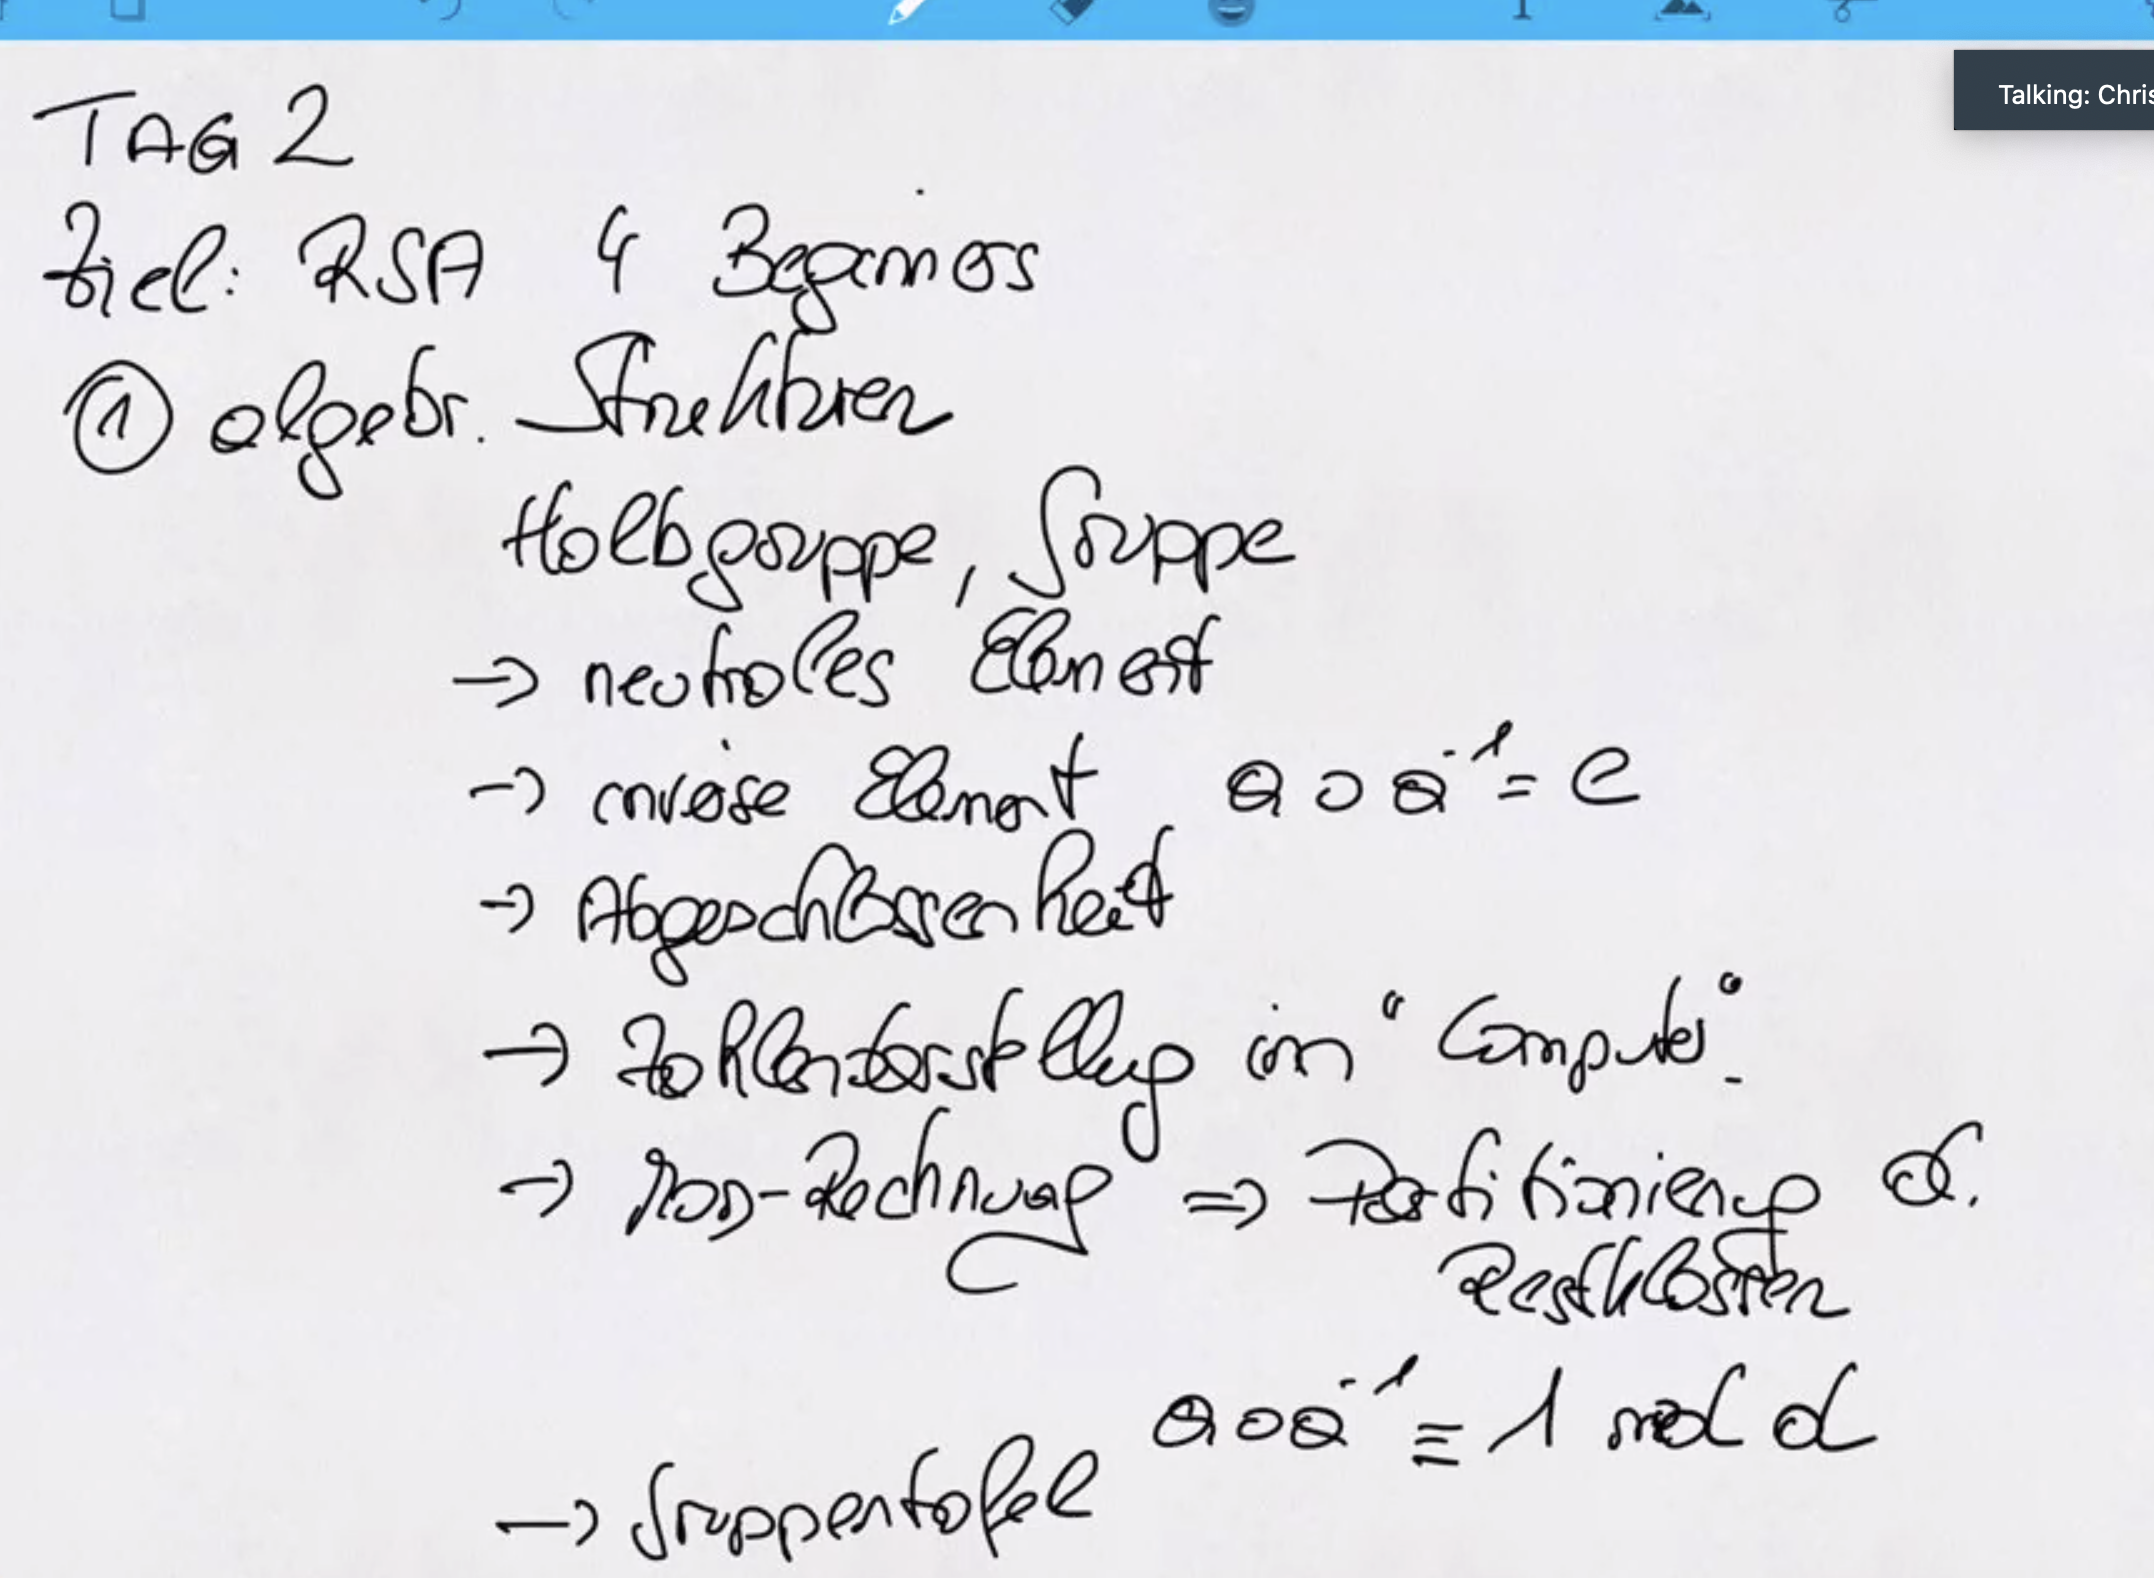 Talking: Chris
TAG 2
Ziel: RSA 4 Beginners
① algebr. Strukturen
Halbgruppe, Gruppe
→ neutrales Element
→ inverse Element a ∘ a⁻¹ = e
→ Abgeschlossenheit
→ Zahlendarstellung im "Computer"
→ MOD-Rechnung ⇒ Partitionierung d.
Restklassen
a ∘ a⁻¹ ≡ 1 mod d
→ Gruppentafel